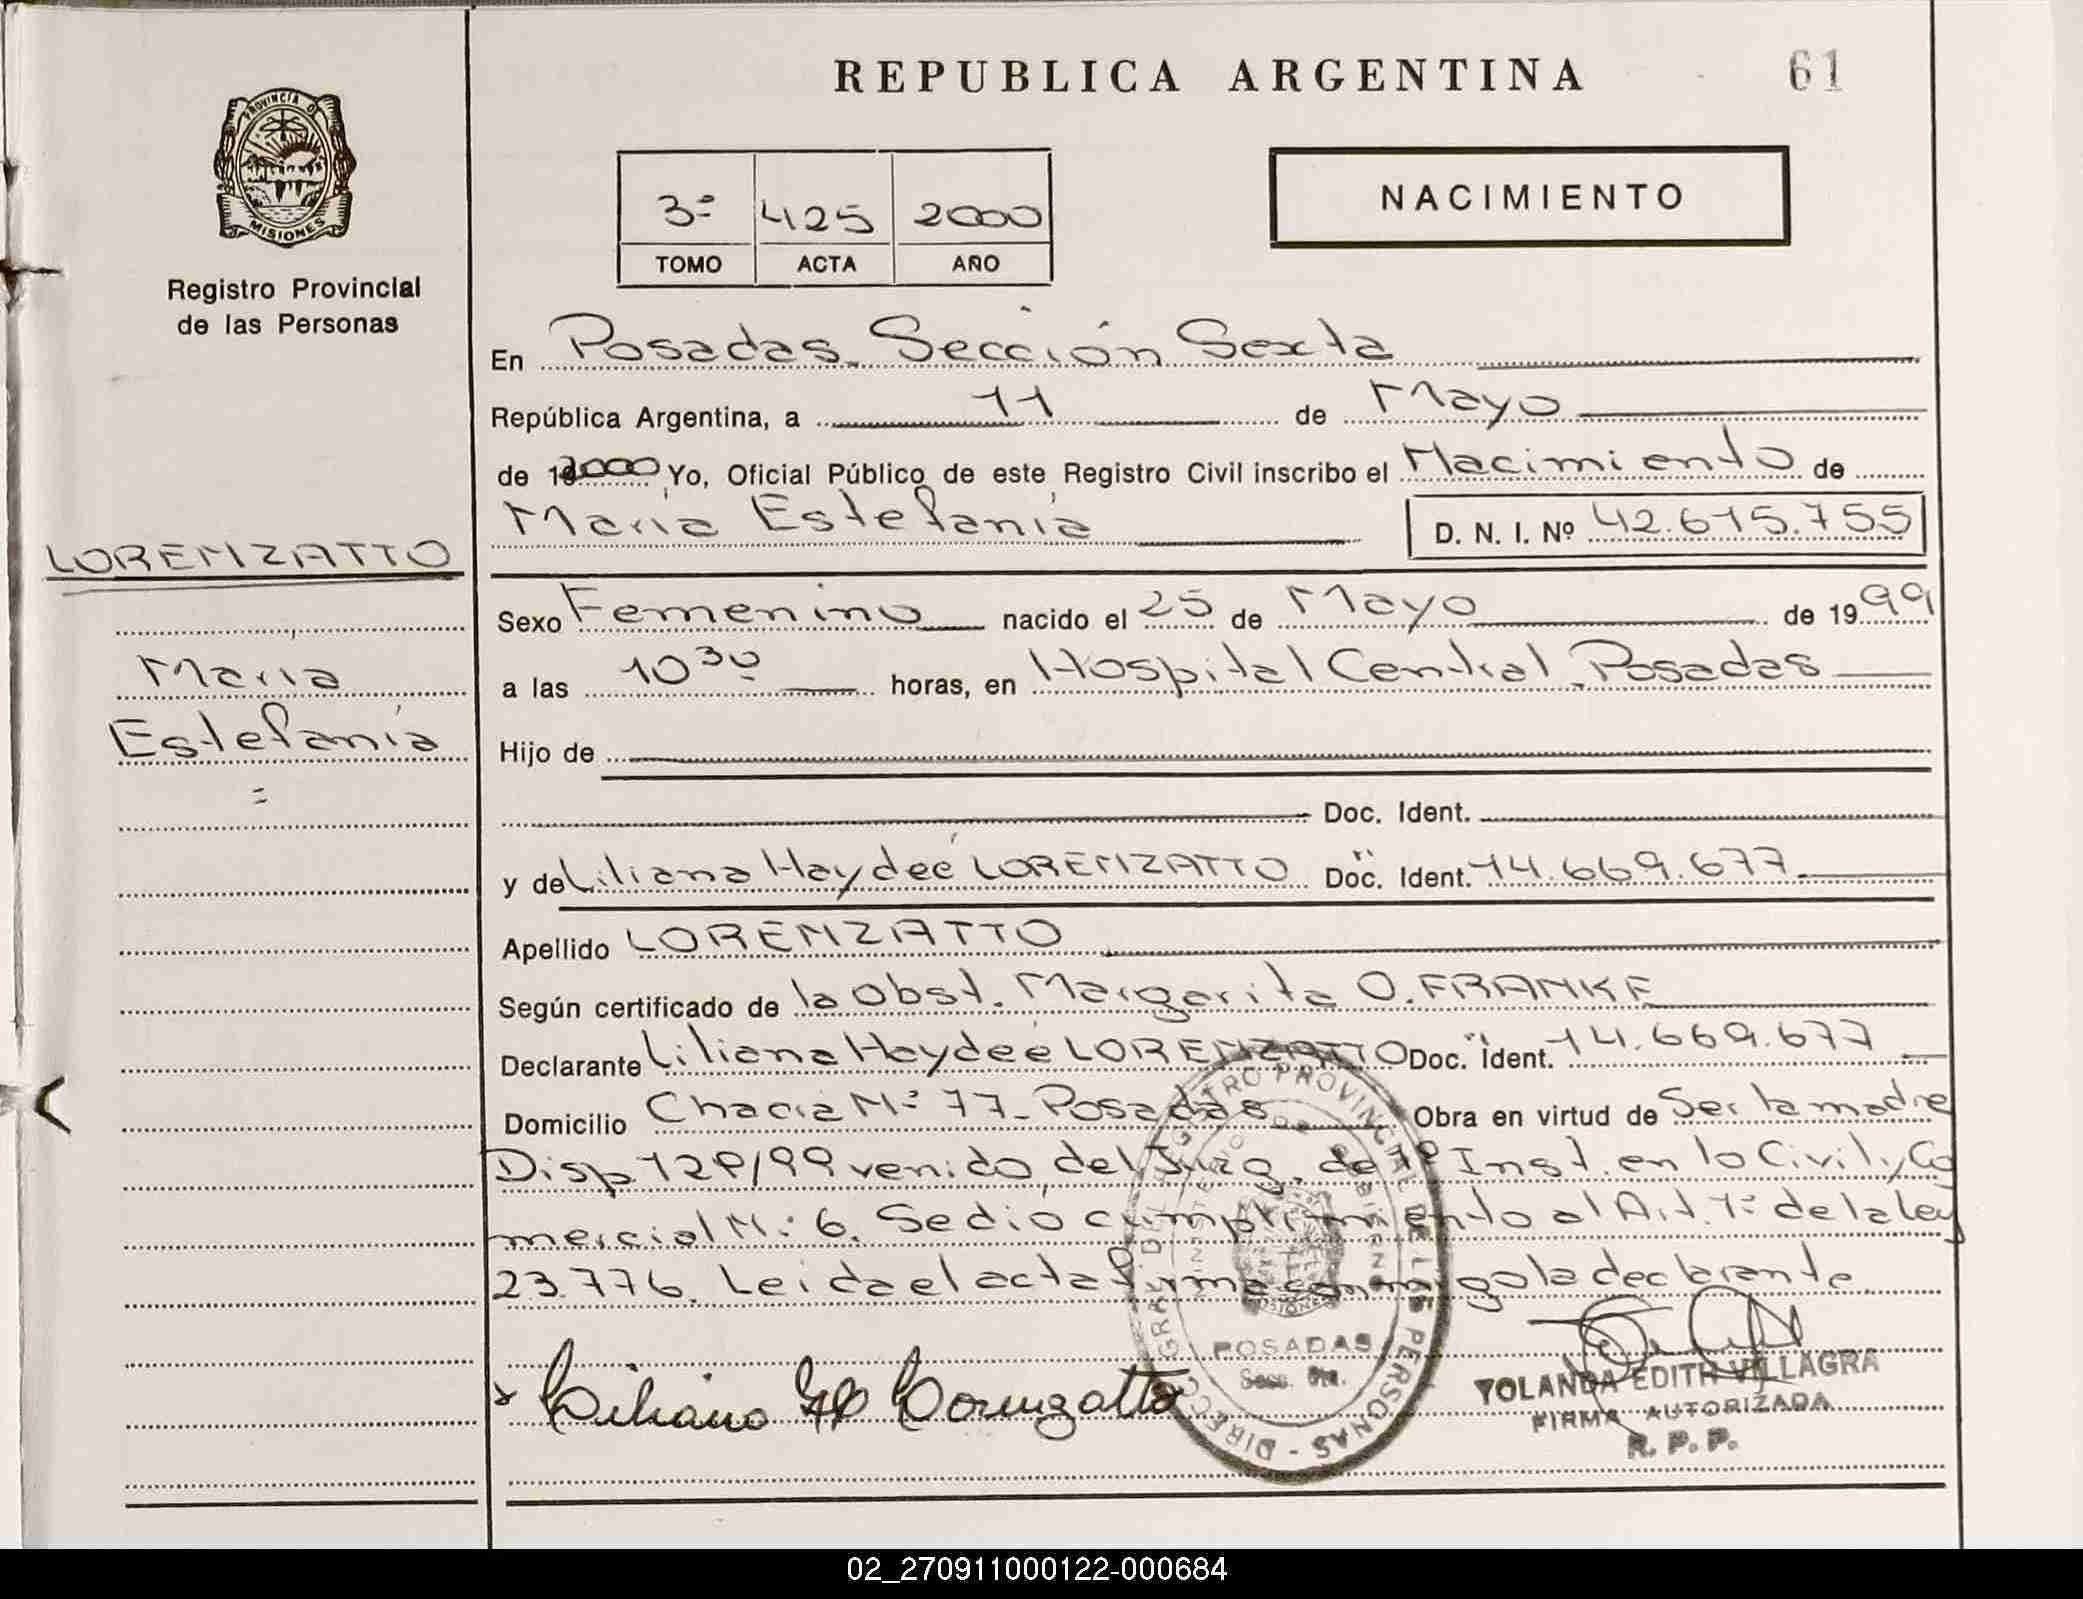 REPUBLICA ARGENTINA
61
PROVINCIA DE
MISIONES
Registro Provincial
de las Personas
3º 425 2000
TOMO ACTA AÑO
NACIMIENTO
En Posadas. Sección Sexta
República Argentina, a 11 de Mayo
de 2000 Yo, Oficial Público de este Registro Civil inscribo el Nacimiento de
María Estefanía D. N. I. Nº 42.615.755
LORENZATTO
María
Estefanía
=
Sexo Femenino nacido el 25 de Mayo de 1999
a las 10³⁰ horas, en Hospital Central. Posadas
Hijo de
Doc. Ident.
y de Liliana Haydeé LORENZATTO Doc. Ident. 14.669.677
Apellido LORENZATTO
Según certificado de la Obst. Margarita O. FRANKE
Declarante Liliana Haydeé LORENZATTO Doc. Ident. 14.669.677
Domicilio Chacra Nº 77 - Posadas Obra en virtud de Ser la madre
Disp. 129/99 venido del Juzg. de 1º Inst. en lo Civil y Co
mercial Nº 6. Se dió cumplimiento al Art. 1º de la Ley
23.776. Leida el acta firma conmigo la declarante.
DIRECC. GRAL. DEL REGISTRO PROVINCIAL DE LAS PERSONAS
POSADAS
Secc. 6ta.
Liliana H Lorenzatto
YOLANDA EDITH VILLAGRA
FIRMA AUTORIZADA
R. P. P.
02_270911000122-000684